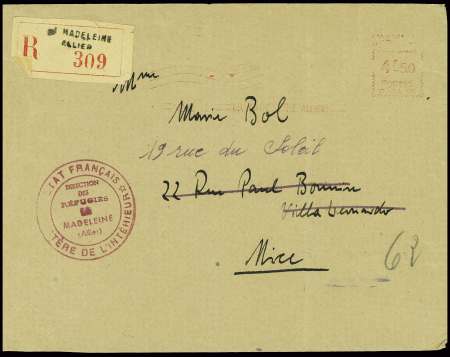 MADELEINE
ALLIER
R 309
4F50
POSTES
Mme
Marie Bol
19 rue du Soleil
22 Rue Paul Bounin
Villa Leonardo
Nice
62
ÉTAT FRANÇAIS
DIRECTION
DES
RÉFUGIÉS
LA
MADELEINE
(Allier)
MINISTÈRE DE L'INTÉRIEUR